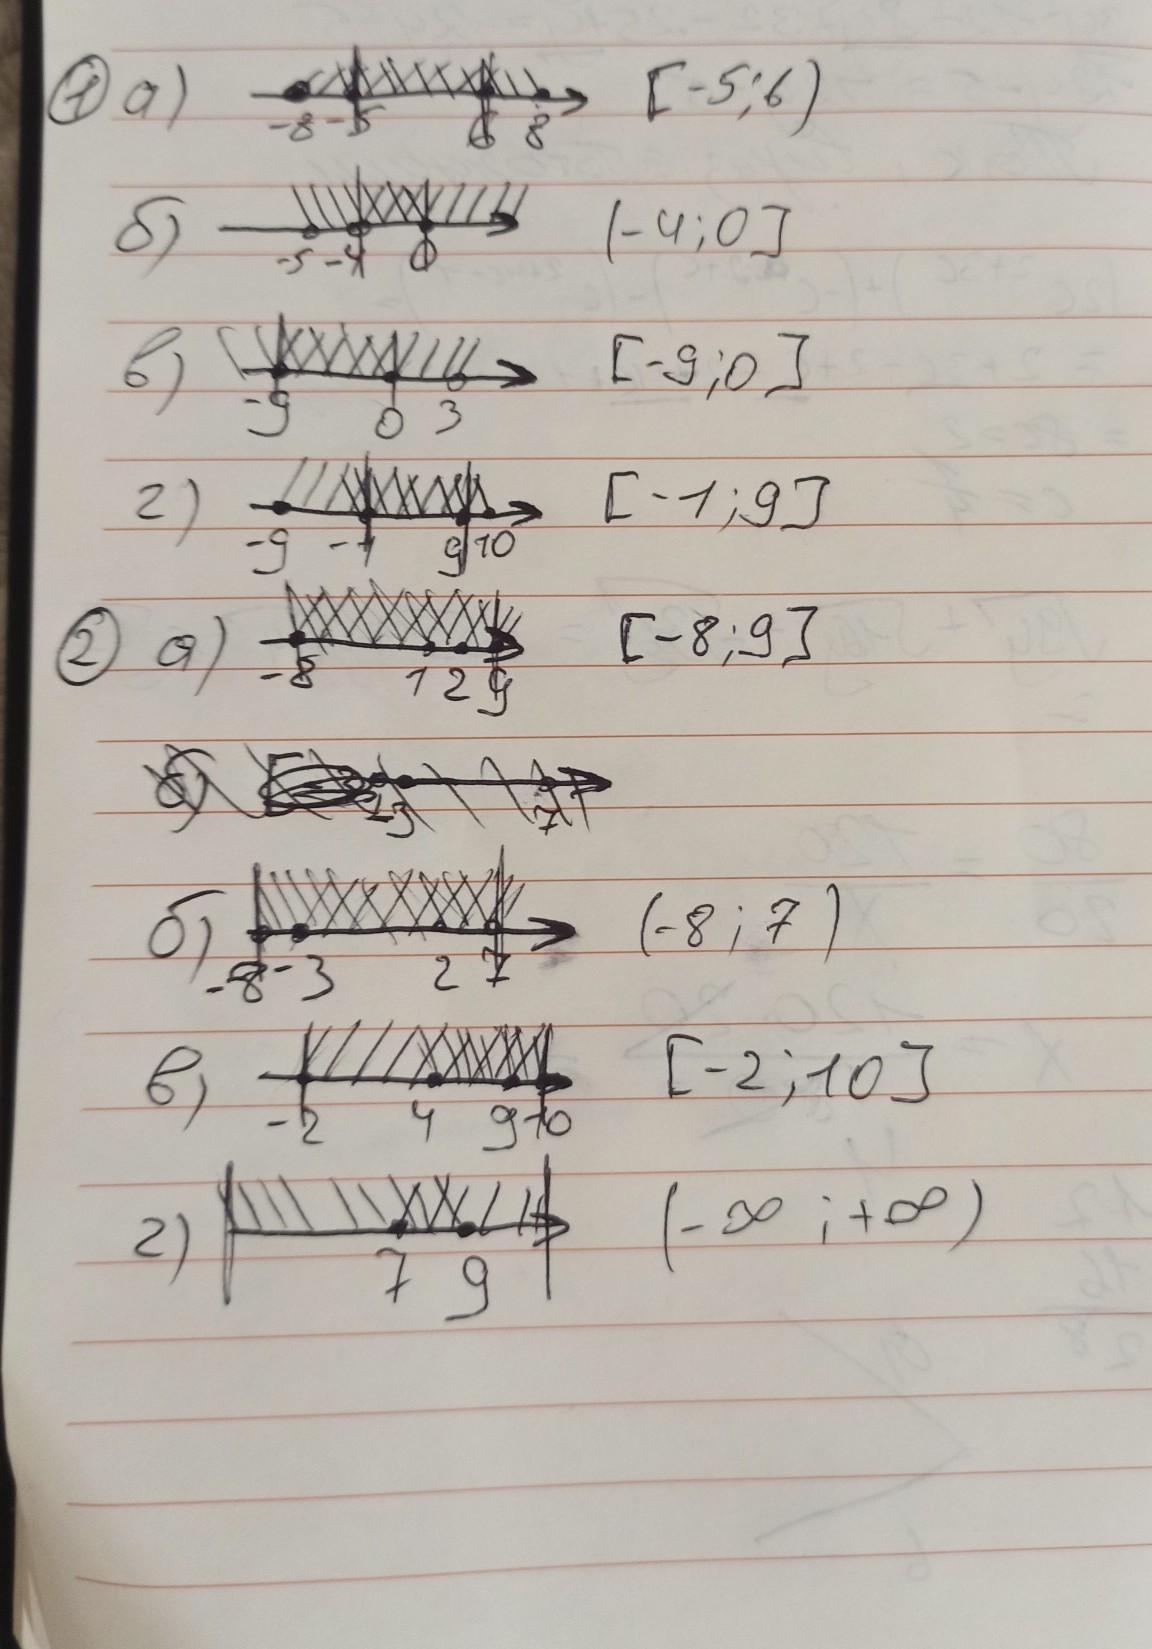 1 а) [-5;6)
-8 -5 6 8
б) (-4;0]
-5 -4 0
в) [-9;0]
-9 0 3
г) [-1;9]
-9 -1 9 10
2 а) [-8;9]
-8 1 2 9
-3 7
б) (-8;7)
-8 -3 2 7
в) [-2;10]
-2 4 9 10
г) (-∞;+∞)
7 9